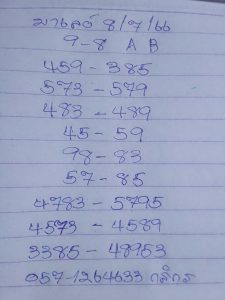 มาเลย์ 8/7/66
9-8 A B
459-385
573-579
483-489
45-59
98-83
57-85
4783-5795
4573-4589
3385-48953
057-1264633 กสิกร